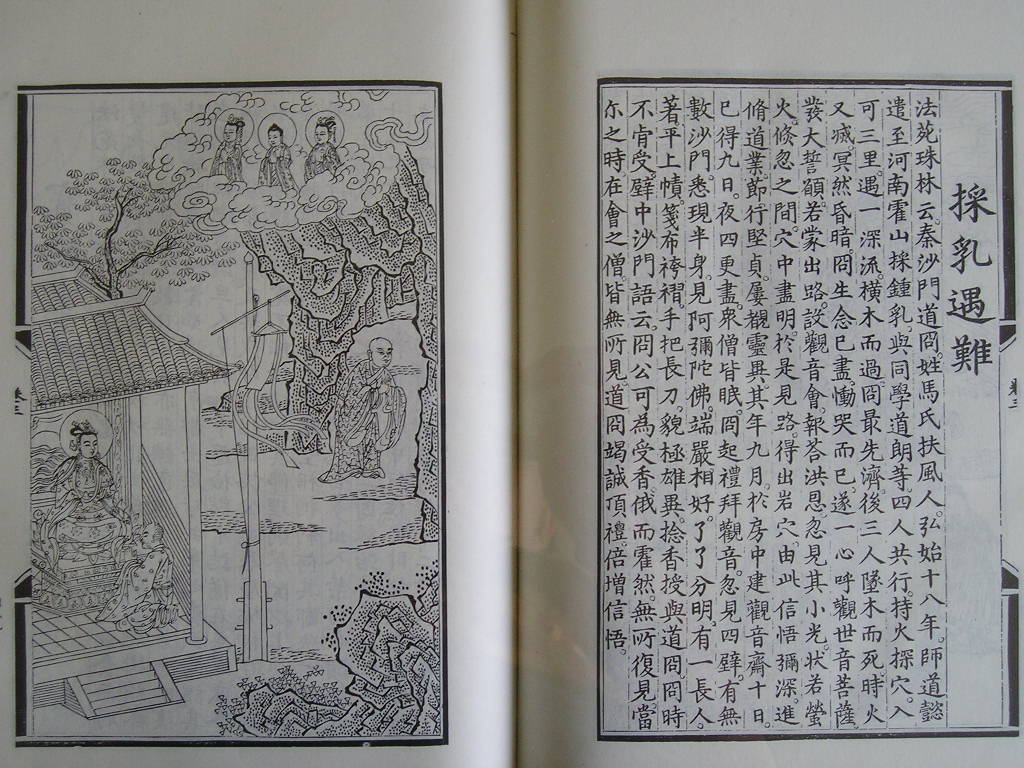 採乳遇難
法苑珠林云。秦沙門道冏。姓馬氏扶風人。弘始十八年。師道懿
遣至河南霍山採鍾乳。與同學道朗等四人共行。持火探穴。入
可三里。遇一深流。橫木而過。冏最先濟。後三人墜木而死。時火
又滅。冥然昏暗。冏生念已盡。慟哭而已。遂一心呼觀世音菩薩
發大誓願。若蒙出路。設觀音會。報荅洪恩。忽見其小光。狀若螢
火。倐忽之間。穴中盡明。於是見路。得出岩穴。由此信悟彌深。進
脩道業。節行堅貞。屢覩靈異。其年九月。於房中建觀音齋十日。
已得九日。夜四更盡。衆僧皆眠。冏起禮拜觀音。忽見四壁。有無
數沙門。悉現半身。見阿彌陀佛。端嚴相好。了了分明。有一長人。
著平上幘。箋布袴褶。手把長刀。貌極雄異。捻香授與道冏。冏時
不肯受。壁中沙門語云。冏公可為受香。俄而霍然。無所復見。當
尒之時。在會之僧皆無所見。道冏竭誠頂禮。倍增信悟。
卷三
卷三